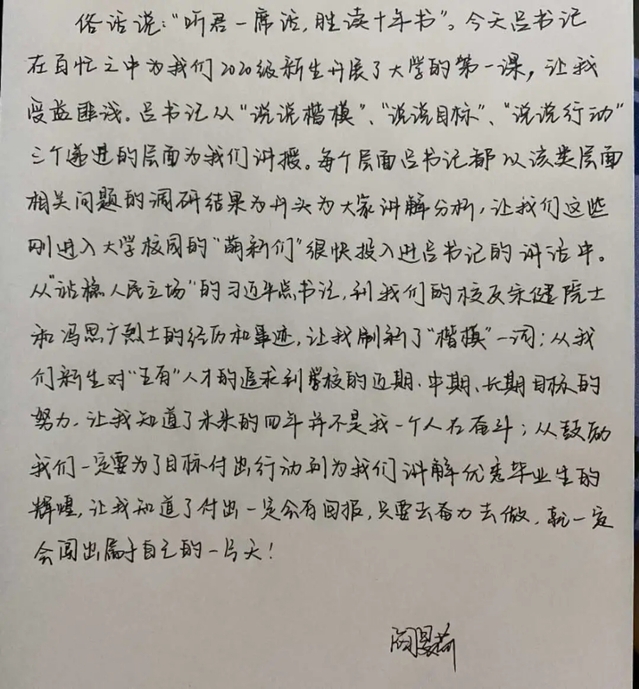 俗话说：“听君一席话，胜读十年书”。今天吕书记
在百忙之中为我们2020级新生开展了大学的第一课，让我
受益匪浅。吕书记从“说说楷模”、“说说目标”、“说说行动”
三个递进的层面为我们讲授。每个层面吕书记都以该类层面
相关问题的调研结果为开头为大家讲解分析，让我们这些
刚进入大学校园的“萌新们”很快投入进吕书记的讲话中。
从“站稳人民立场”的习近平总书记，到我们的校友宋健院士
和冯思广烈士的经历和事迹，让我刷新了“楷模”一词；从我
们新生对“五有”人才的追求到学校的近期、中期、长期目标的
努力，让我知道了未来的四年并不是我一个人在奋斗；从鼓励
我们一定要为了目标付出行动到为我们讲解优秀毕业生的
辉煌，让我知道了付出一定会有回报，只要去奋力去做，就一定
会闯出属于自己的一片天！